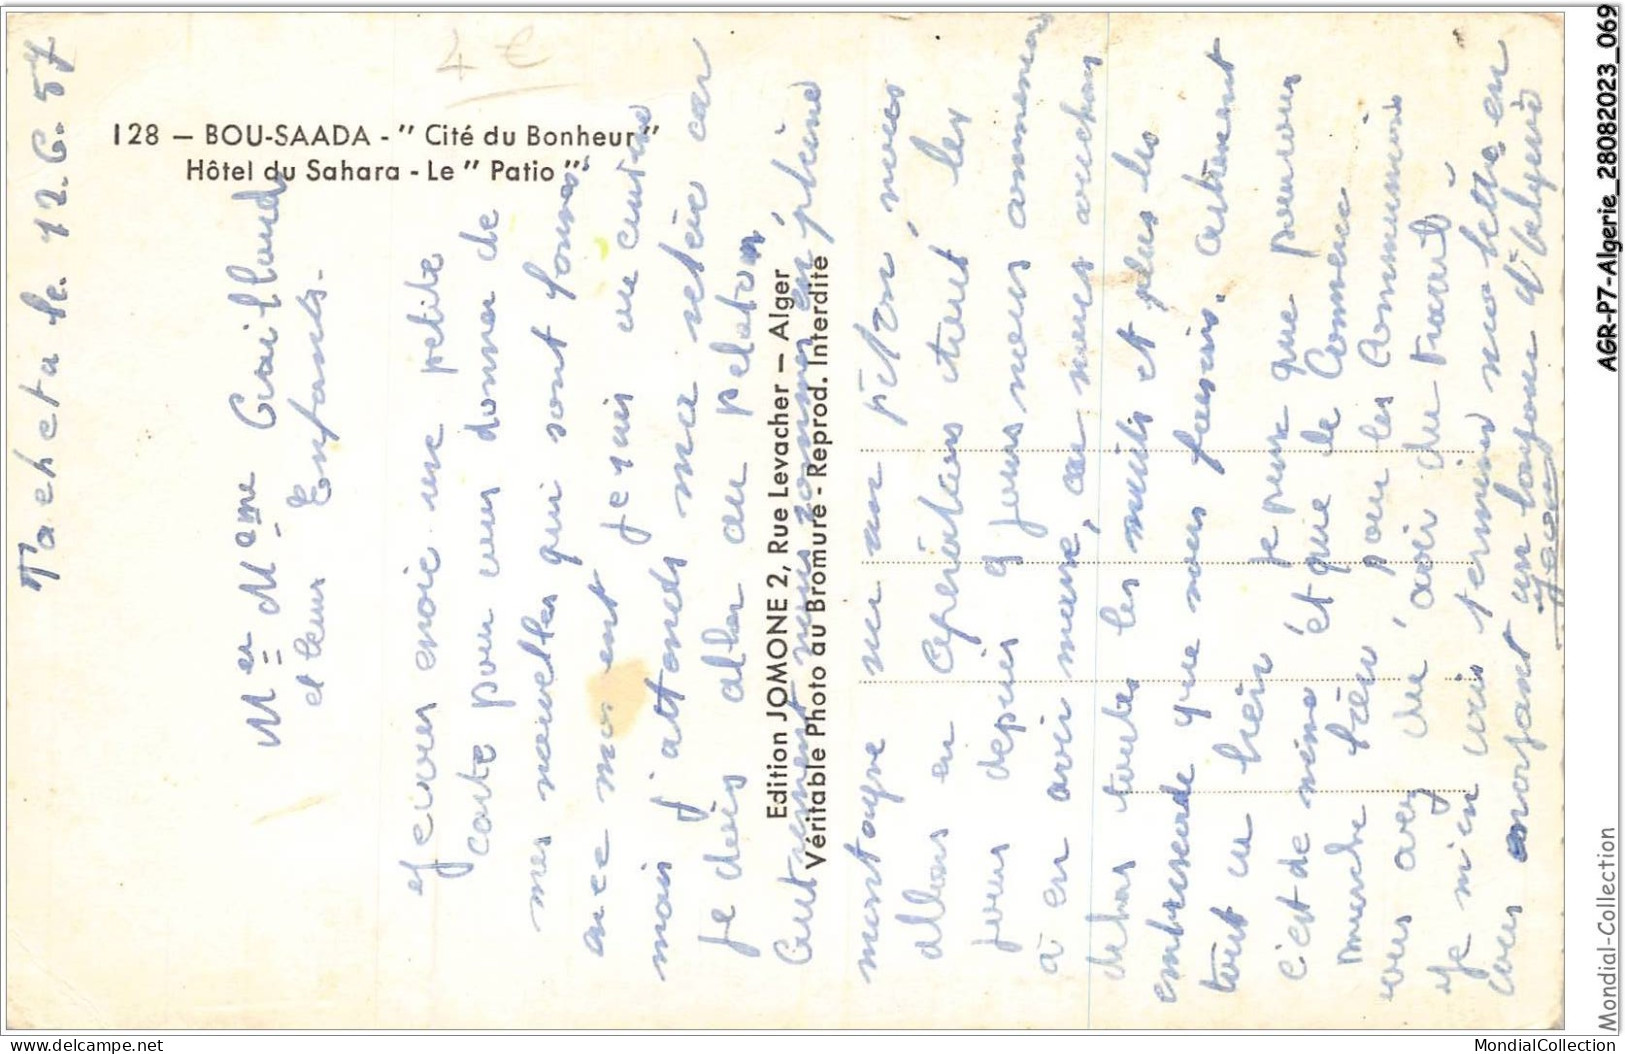 4 €
128 — BOU-SAADA - " Cité du Bonheur "
Hôtel du Sahara - Le " Patio "
Edition JOMONE 2, Rue Levacher — Alger
Véritable Photo au Bromure - Reprod. Interdite
Tacheta le 12.6.57
Mer Mame Graillaud
et leurs Enfants.
Je vous envoie une petite
carte pour vous donner de
mes nouvelles qui sont
en ce moment je suis
mais j'attends ma
je dois aller au peloton
Autrement nous sommes en pleine
montagne sur un piton, nous
allons en opérations tout les
jours depuis jours nous commencons
à en avoir marre, car nous couchons
dehors toute les nuits et plus les
embuscade que nous faisons. autrement
tout va bien je pense que pour vous
c'est de même et que le Commerce
marche bien, pour les Communions
vous avez du avoir du travail
Je m'en vais terminer ma lettre en
vous
Jean
AGR-P7-Algerie_28082023_069
Mondial-Collection
delcampe.net
MondialCollection